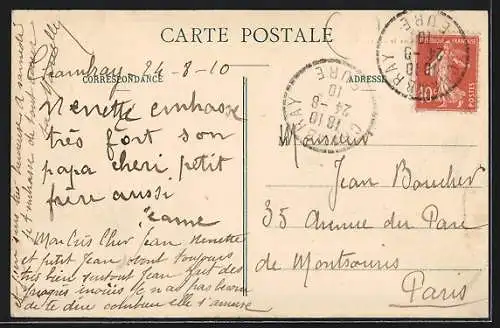 CARTE POSTALE
CORRESPONDANCE
ADRESSE
Chambray 24-8-10
Nenette embrasse
très fort son
papa cheri, petit
frère aussi
Mon très cher Jean, Nenette
et petit Jean sont toujours
très bien surtout Jean fait des
progrès inouïs Je n'ai pas besoin
de te dire combien elle s'amuse
Monsieur
Jean Boucher
35 Avenue du Parc
de Montsouris
Paris
CHAMBRAY
EURE
18 10
24-8
10
REPUBLIQUE FRANCAISE
10
POSTES